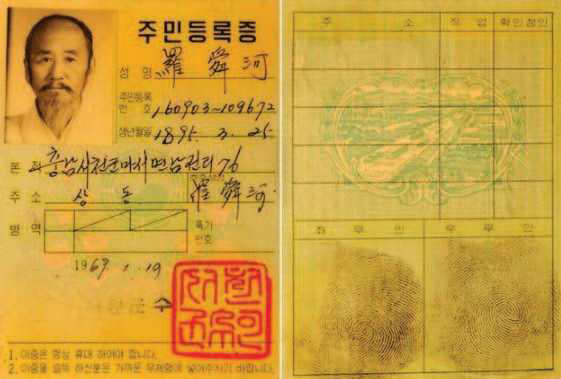 주민등록증
성명 羅舜河
주민등록
번호 160903-109672
생년월일 1895. 3. 25
본적 충남서천군마서면남전리76
주소 상동
병역
특기
번호
1969. 1. 19
군수
1. 이증은 항상 휴대 하여야 합니다.
2. 이증을 습득 하신분은 가까운 우체함에 넣어주시기 바랍니다.
주소 직업 확인청인
좌무인 우무인